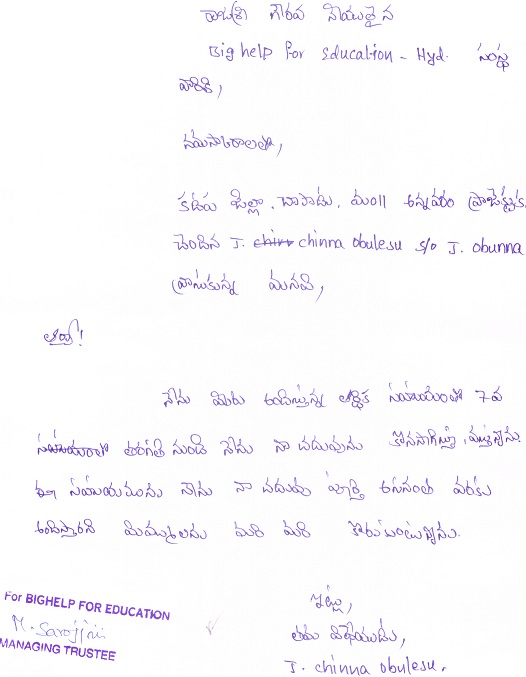 రాజశ్రీ గౌరవ నీయులైన
Big help for Education - Hyd. సంస్థ
వారికి,
నమస్కారాలతో,
కడప జిల్లా, చాపాడు, మం॥ అన్నవరం ప్రాజెక్టుకు
చెందిన J. chinna obulesu s/o J. obunna
వ్రాసుకున్న మనవి,
ఆర్యా!
నేను మీరు అందిస్తున్న ఆర్థిక సహాయంతో 7వ
తరగతి నుండి నేను నా చదువును కొనసాగిస్తూ, వస్తున్నాను.
ఈ సహాయమును నాను నా చదువు పూర్తి అనంత వరకు
అందిస్తారని మిమ్ములను మరి మరి కోరుకుంటున్నాను.
ఇట్లు,
తమ విధేయుడు,
J. chinna obulesu.
For BIGHELP FOR EDUCATION
M. Sarojini
MANAGING TRUSTEE